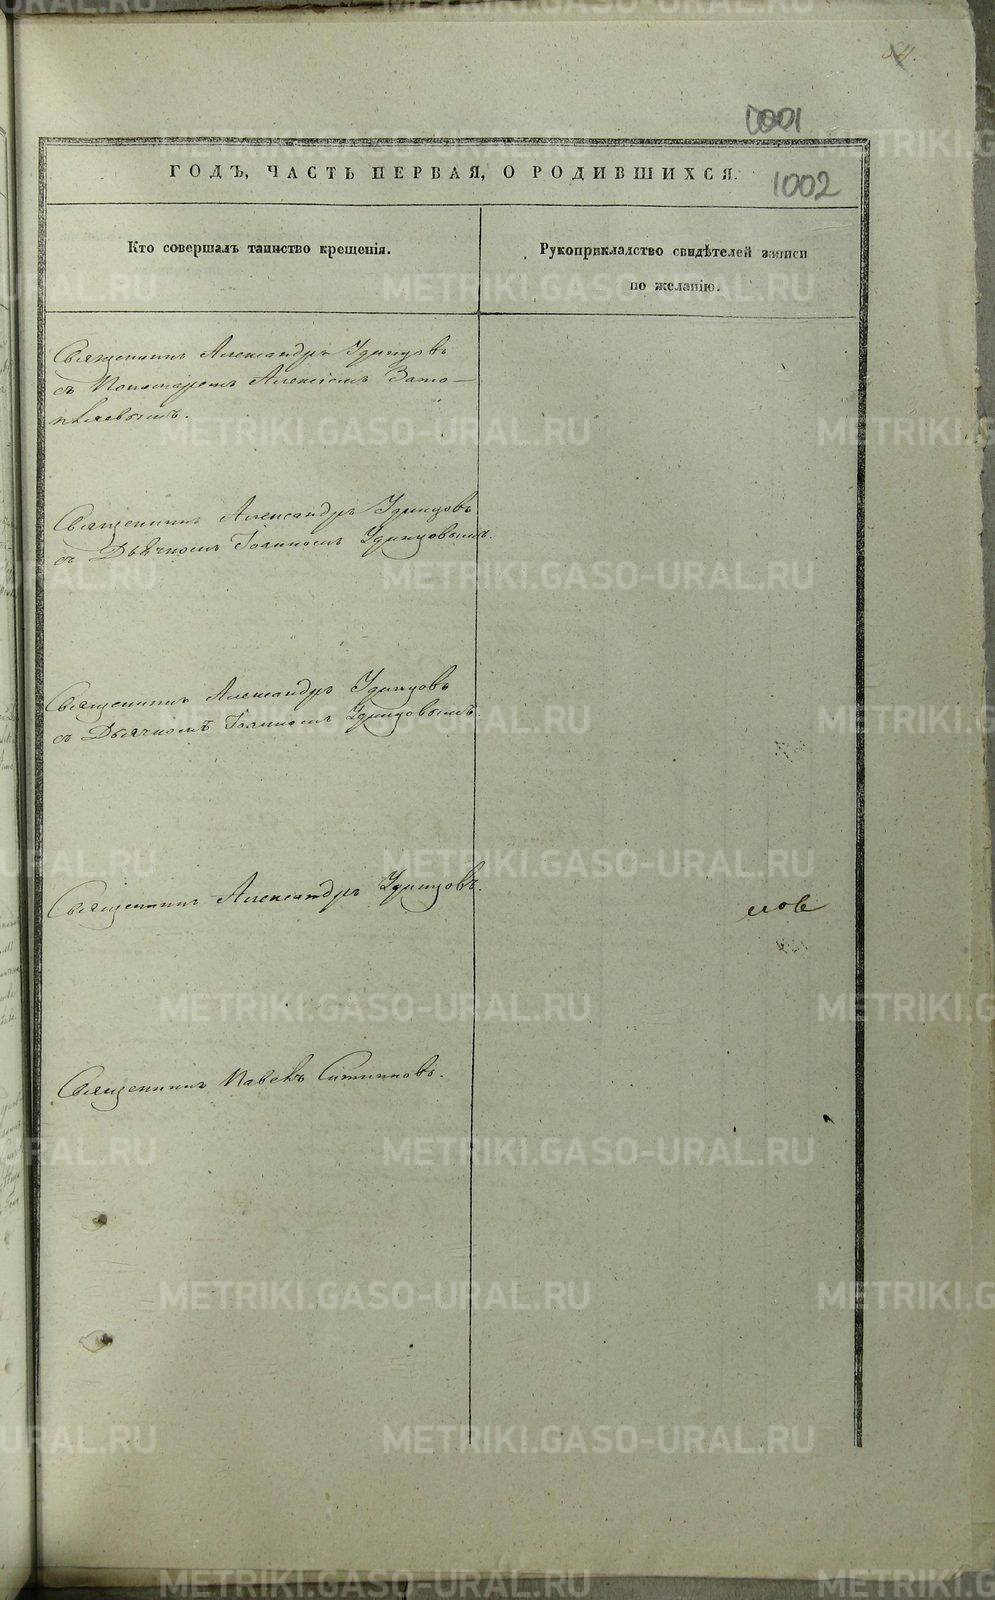 54.
1001
ГОДЪ, ЧАСТЬ ПЕРВАЯ, О РОДИВШИХСЯ.
1002
Кто совершалъ таинство крещенія.
Рукоприкладство свидѣтелей записи
по желанію.
Священникъ Александръ Удинцовъ
съ Пономаремъ Алексіемъ Зато-
пляевымъ.
Священникъ Александръ Удинцовъ
съ Дьячкомъ Іоанномъ Удинцовымъ.
Священникъ Александръ Удинцовъ
съ Дьячкомъ Іоанномъ Удинцовымъ.
Священникъ Александръ Удинцовъ.
мов
Священникъ Павелъ Ситниковъ.
METRIKI.GASO-URAL.RU